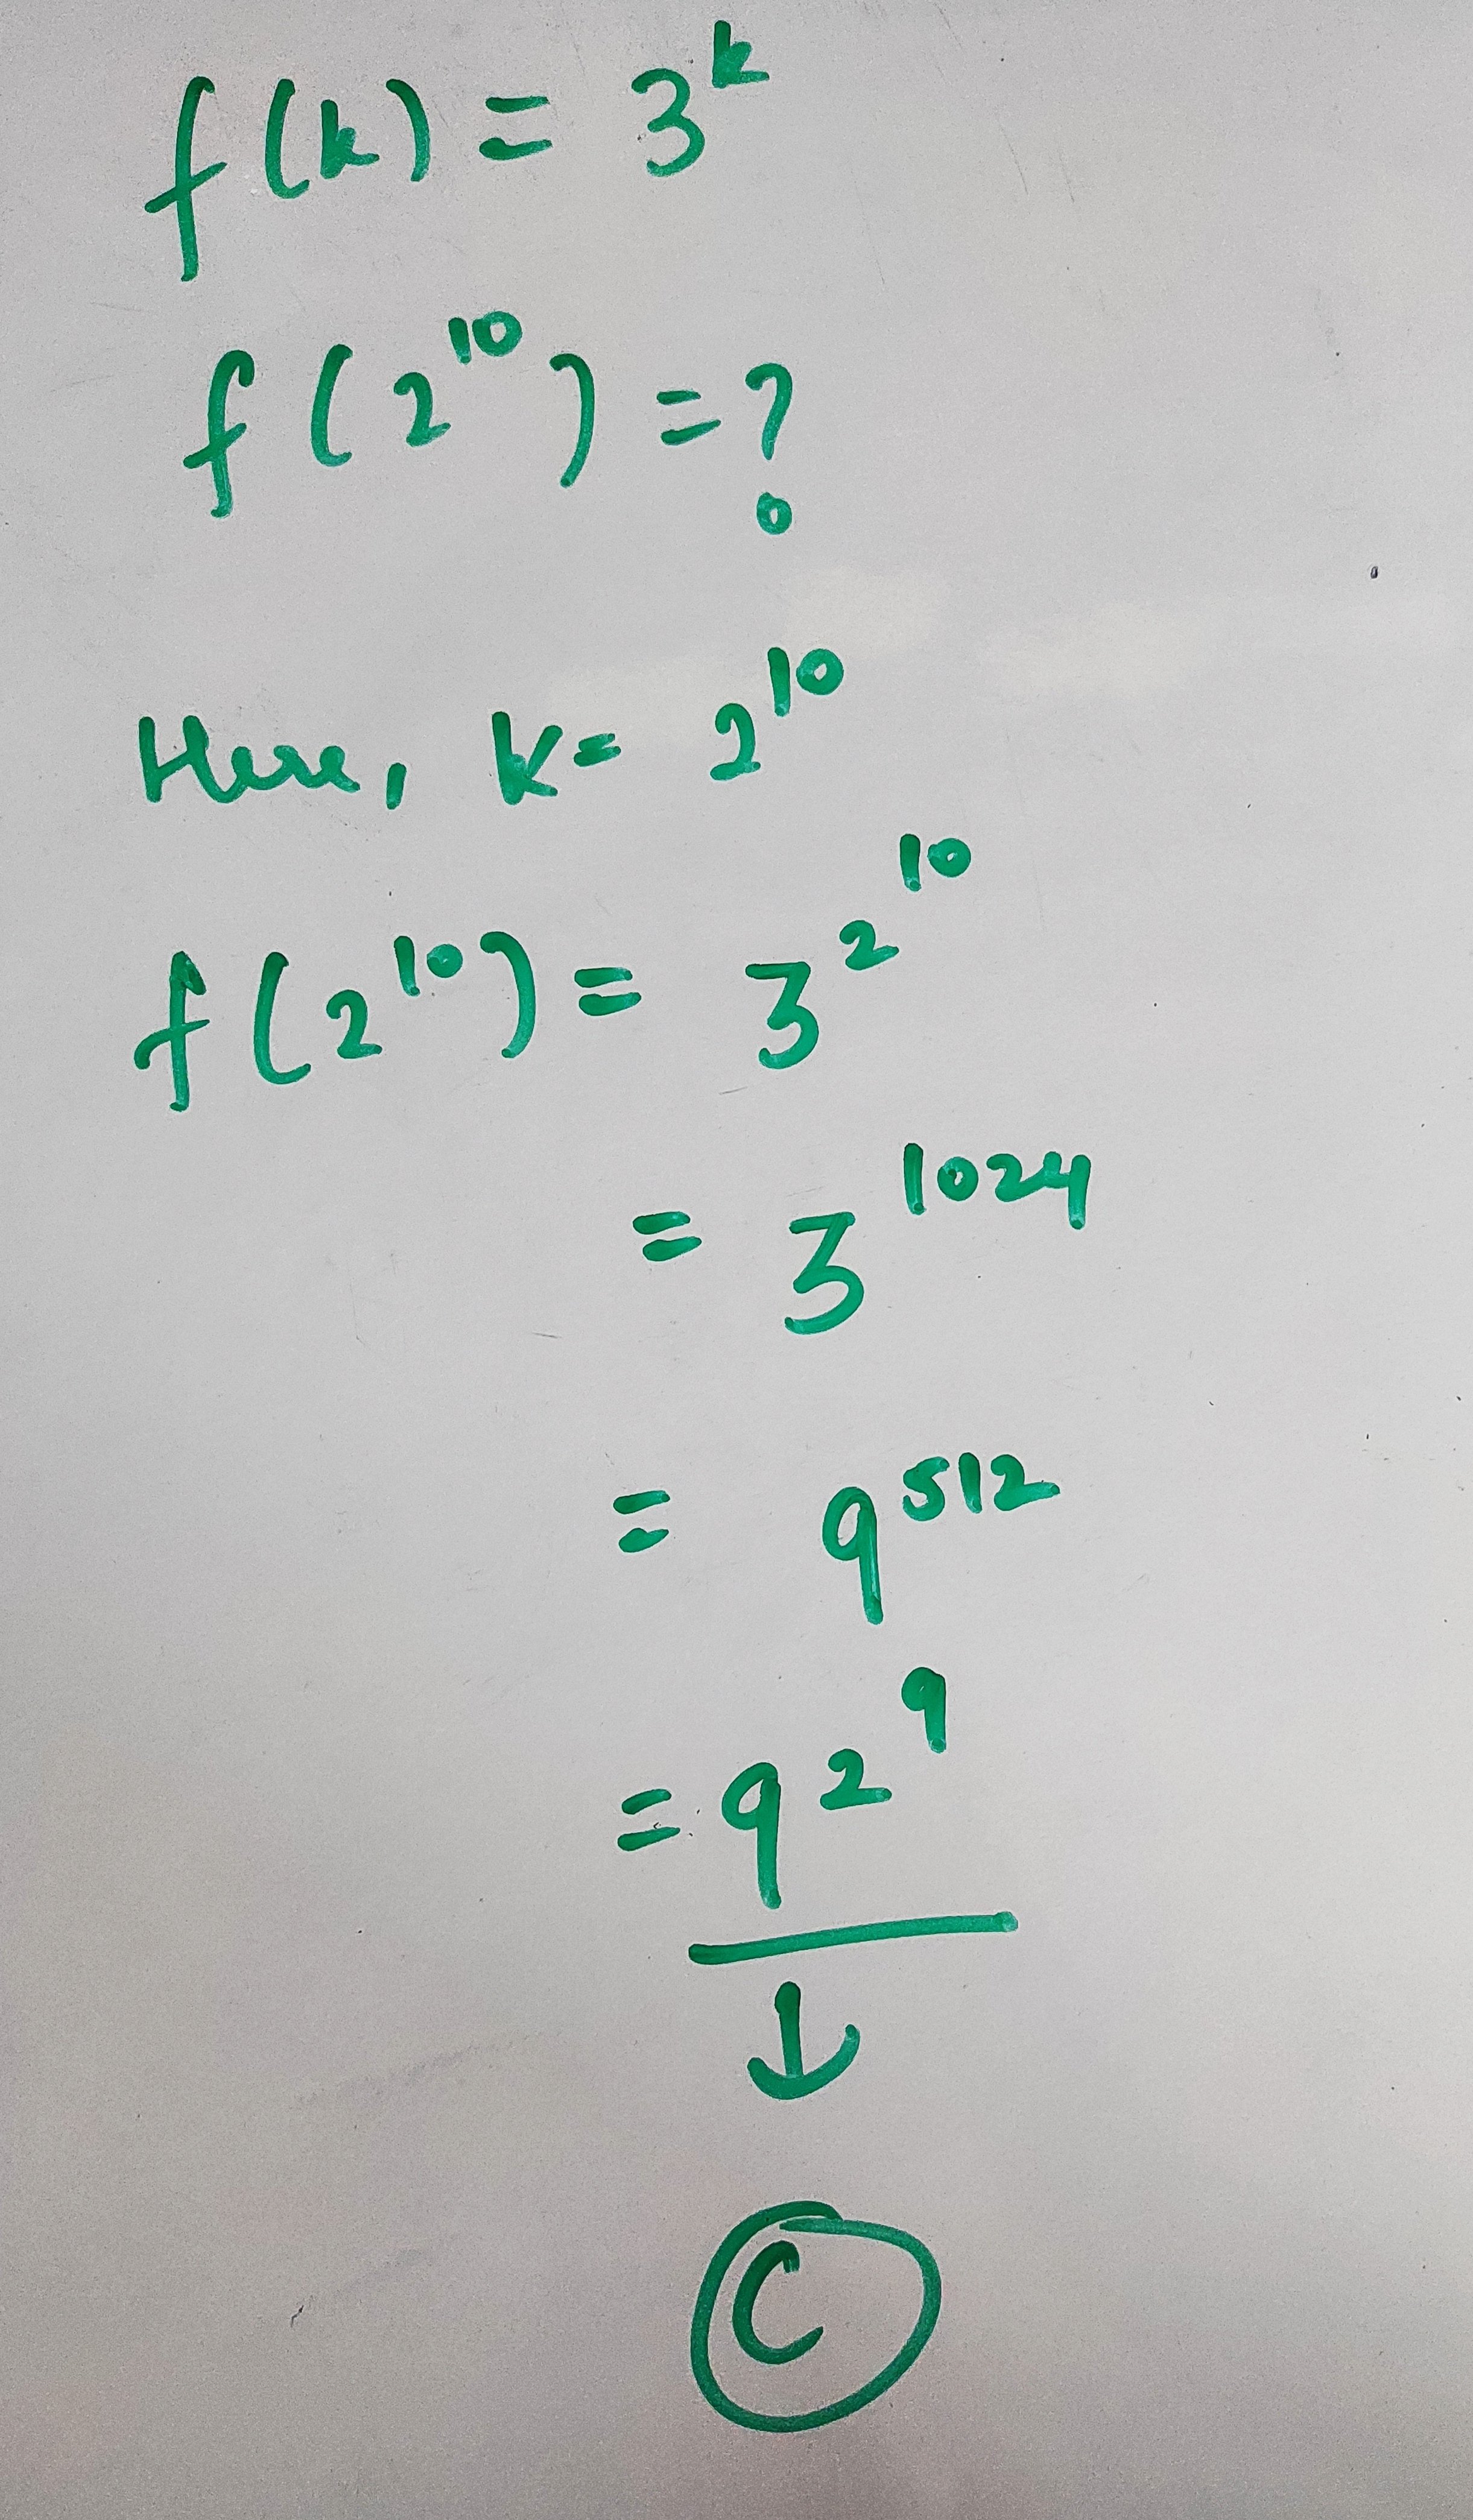 f(k) = 3^k
f(2^10) = ?
Here, k = 2^10
f(2^10) = 3^2^10
= 3^1024
= 9^512
= 9^2^9
↓
C